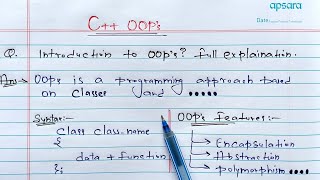 apsara
Date:
C++ OOP's
Q. Introduction to OOP's? full explaination.
Ans→ OOPs is a programming approach based
on Classes and .....
Syntax:-
class class_name
{
data + function
};
OOP's features:-
→ Encapsulation
→ Abstraction
→ polymorphism....